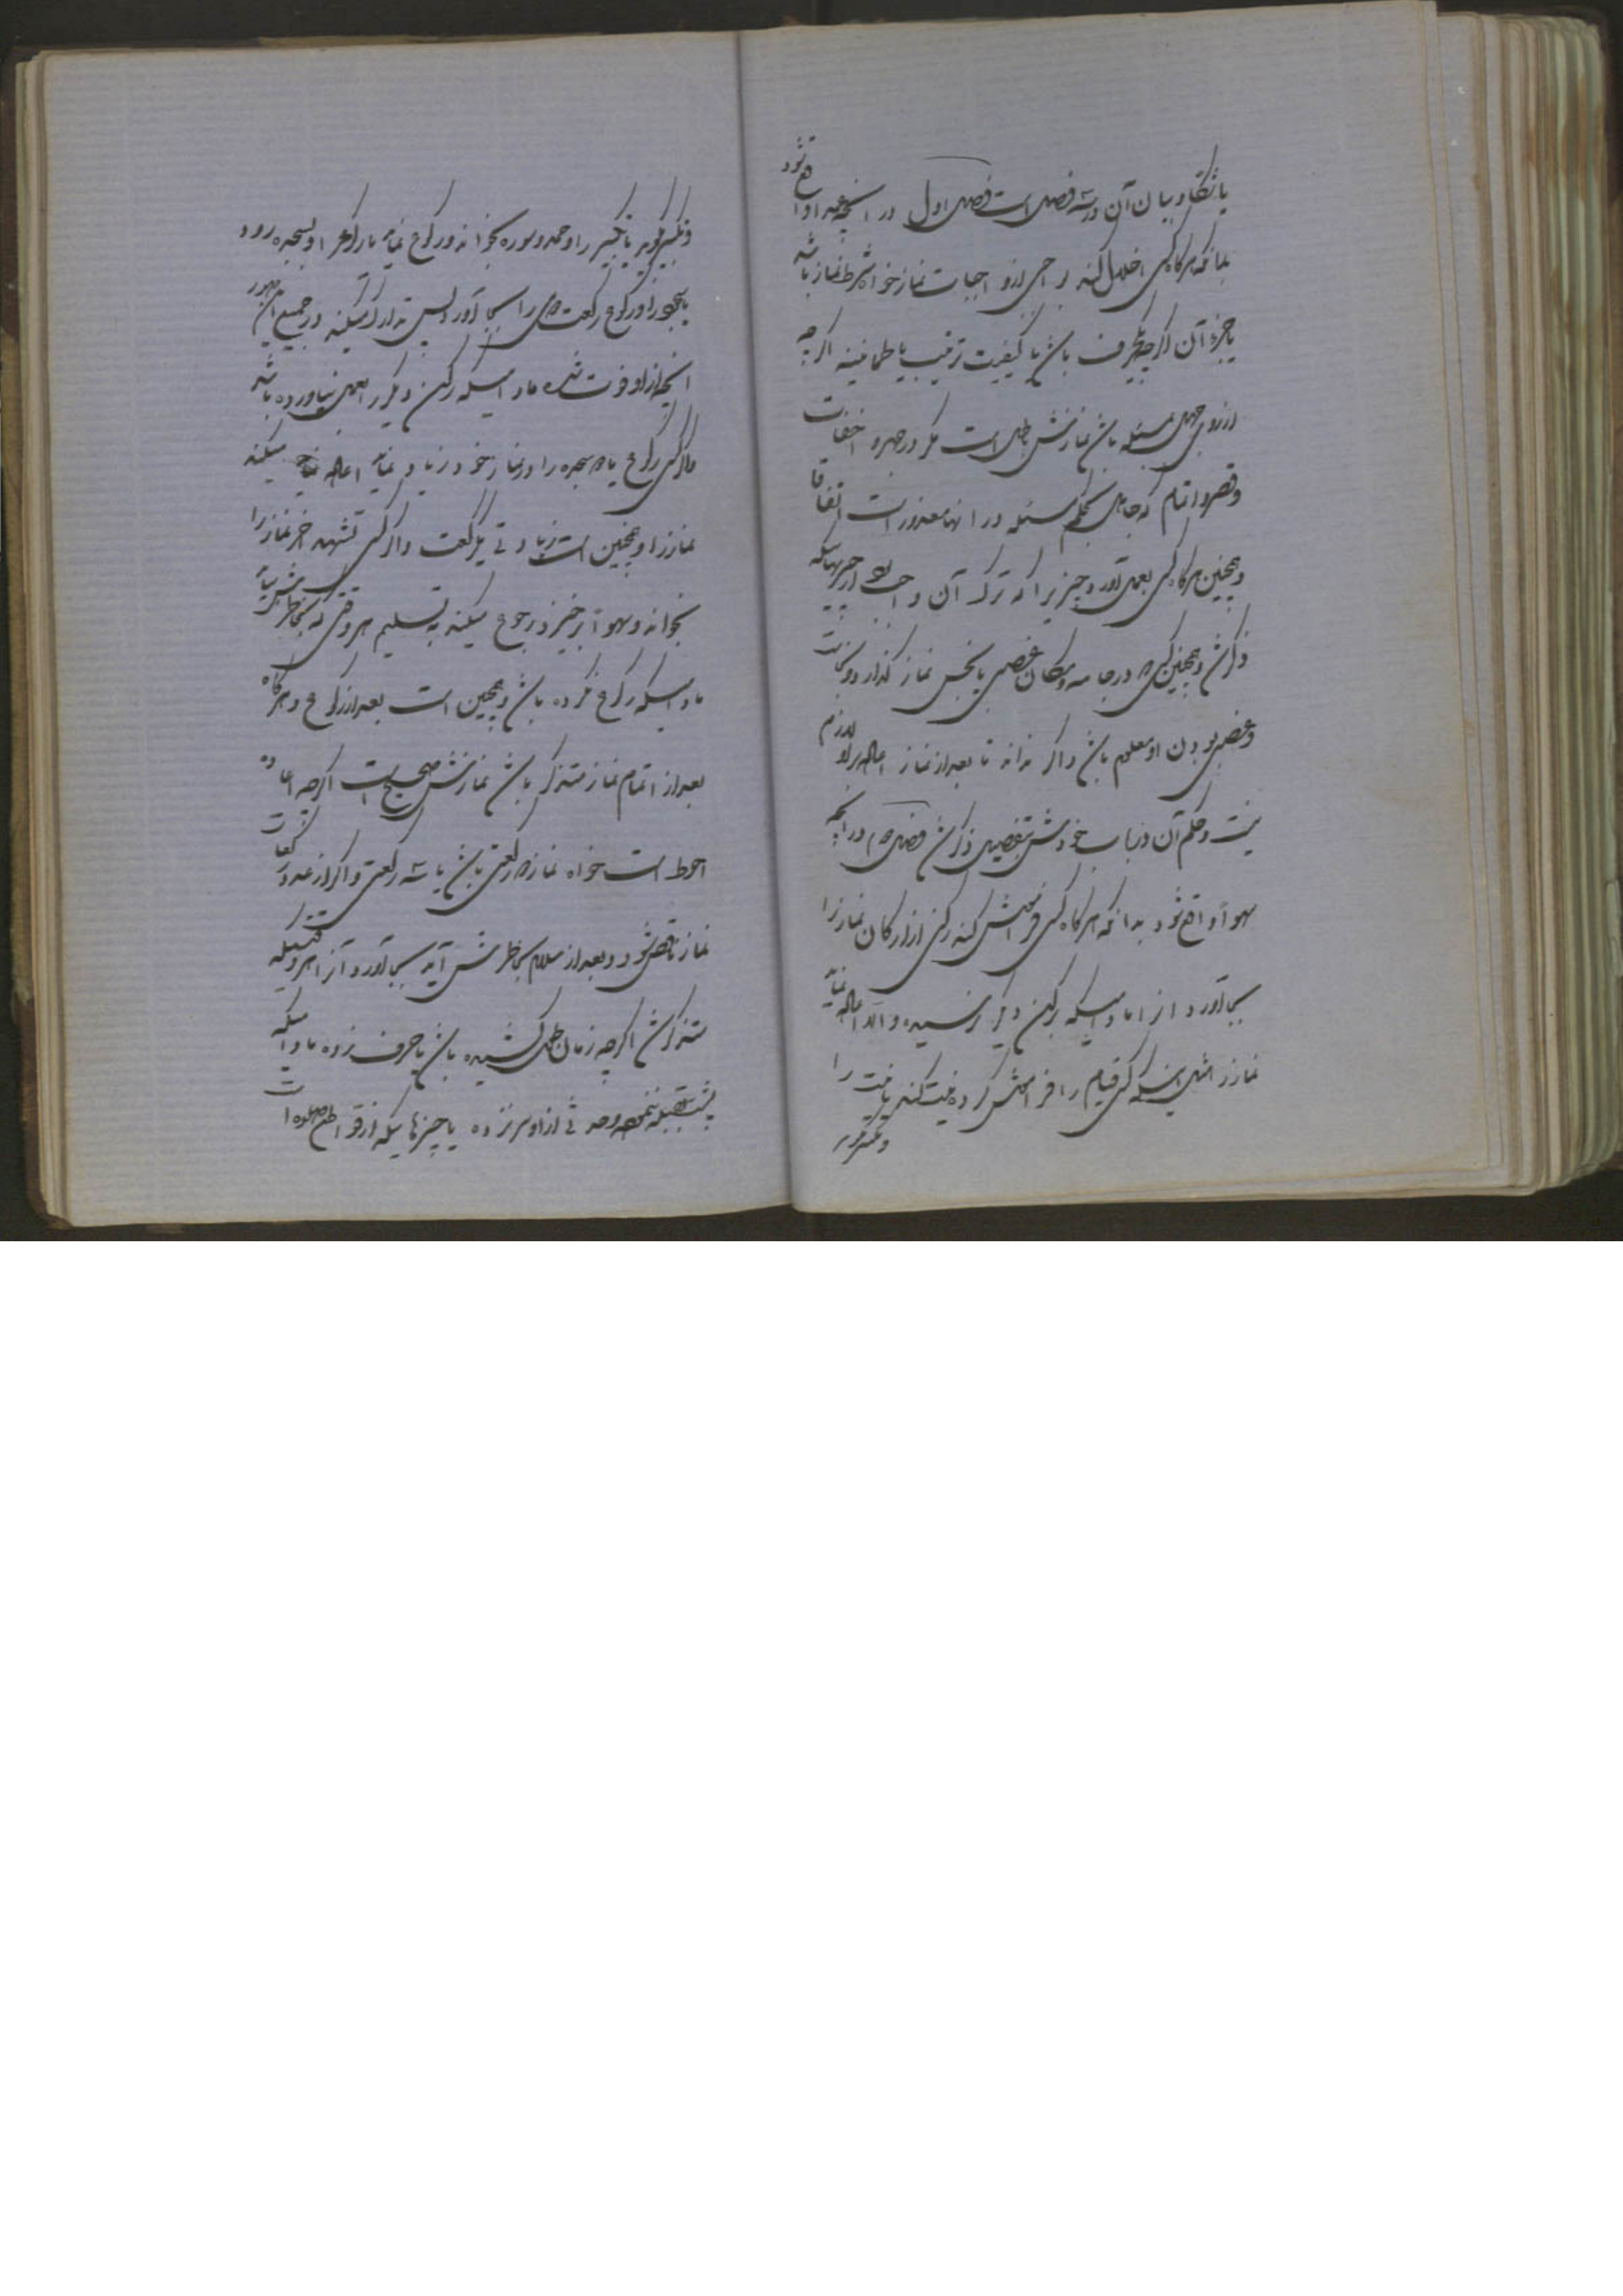 یا شکا و بیان آن در سه فصل است فصل اول در آنچه عمدا واقع شود
بدانکه هرگاه کسی اخلال کند بواجبی از واجبات نماز خواه شرط نماز باشد
یا جزء آن اگر چه یکحرف باشد یا کیفیت ترتیب یا طمانینه اگر چه
از روی جهل مسئله باشد نمازش باطل است مگر در جهر و اخفات
و قصر و اتمام که جاهل بحکم مسئله در انها معذور است اتفاقا
و همچنین هرگاه کسی بعمل آورد چیزیرا که ترک آن واجب بود از چیزهائیکه
ذکر شد و همچنین کسیکه در جامه و مکان غصبی یا نجس نماز گذارد و نجاست
و غصبی بودن او معلوم باشد و اگر نداند تا بعد از نماز اعاده بر او لازم
نیست و حکم آن در باب خودش بتفصیل ذکر شد فصل دوم در آنچه
سهوا واقع شود بدانکه هرگاه کسی فراموش کند رکنی از ارکان نماز را
بجا آورد آنرا مادامیکه برکن دیگر نرسیده والا اعاده نماید
نماز را مثل اینکه کسی قیام را فراموش کرده نیت کند یا نیت را
و تکبر گوید
و تکبیر گوید یا تکبیر را و حمد و سوره بخواند و رکوع نماید یا رکوع را و بسجده رود
یا سجود را و رکوع رکعت دیگر را بجا آورد پس تدارک میکند در جمیع این صور
آنچه از او فوت شده مادامیکه رکن دیگر را بعمل نیاورده باشد
و اگر کسی رکوع یا دو سجده را در نماز خود زیاد نماید اعاده میکند
نماز را و همچنین است زیادتی یکرکعت و اگر کسی تشهد آخر نماز را
بخواند و سهوا برخیزد رجوع میکند به تسلیم هر وقتی که بخاطرش بیاید
مادامیکه رکوع نکرده باشد و همچنین است بعد از رکوع و هرگاه
بعد از اتمام نماز متذکر باشد نمازش صحیح است اگر چه اعاده
احوط است خواه نماز دو رکعتی باشد یا سه رکعتی و اگر از عدد رکعات
نماز ناقص شود و بعد از سلام بخاطرش آید بجا آورد آنرا هر وقتیکه
متذکر شد اگر چه زمان طویل کشیده باشد یا حرف زده مادامیکه
پشت بقبله ننموده و حدثی از او سر نزده یا چیزهائیکه از قواطع صلوة است